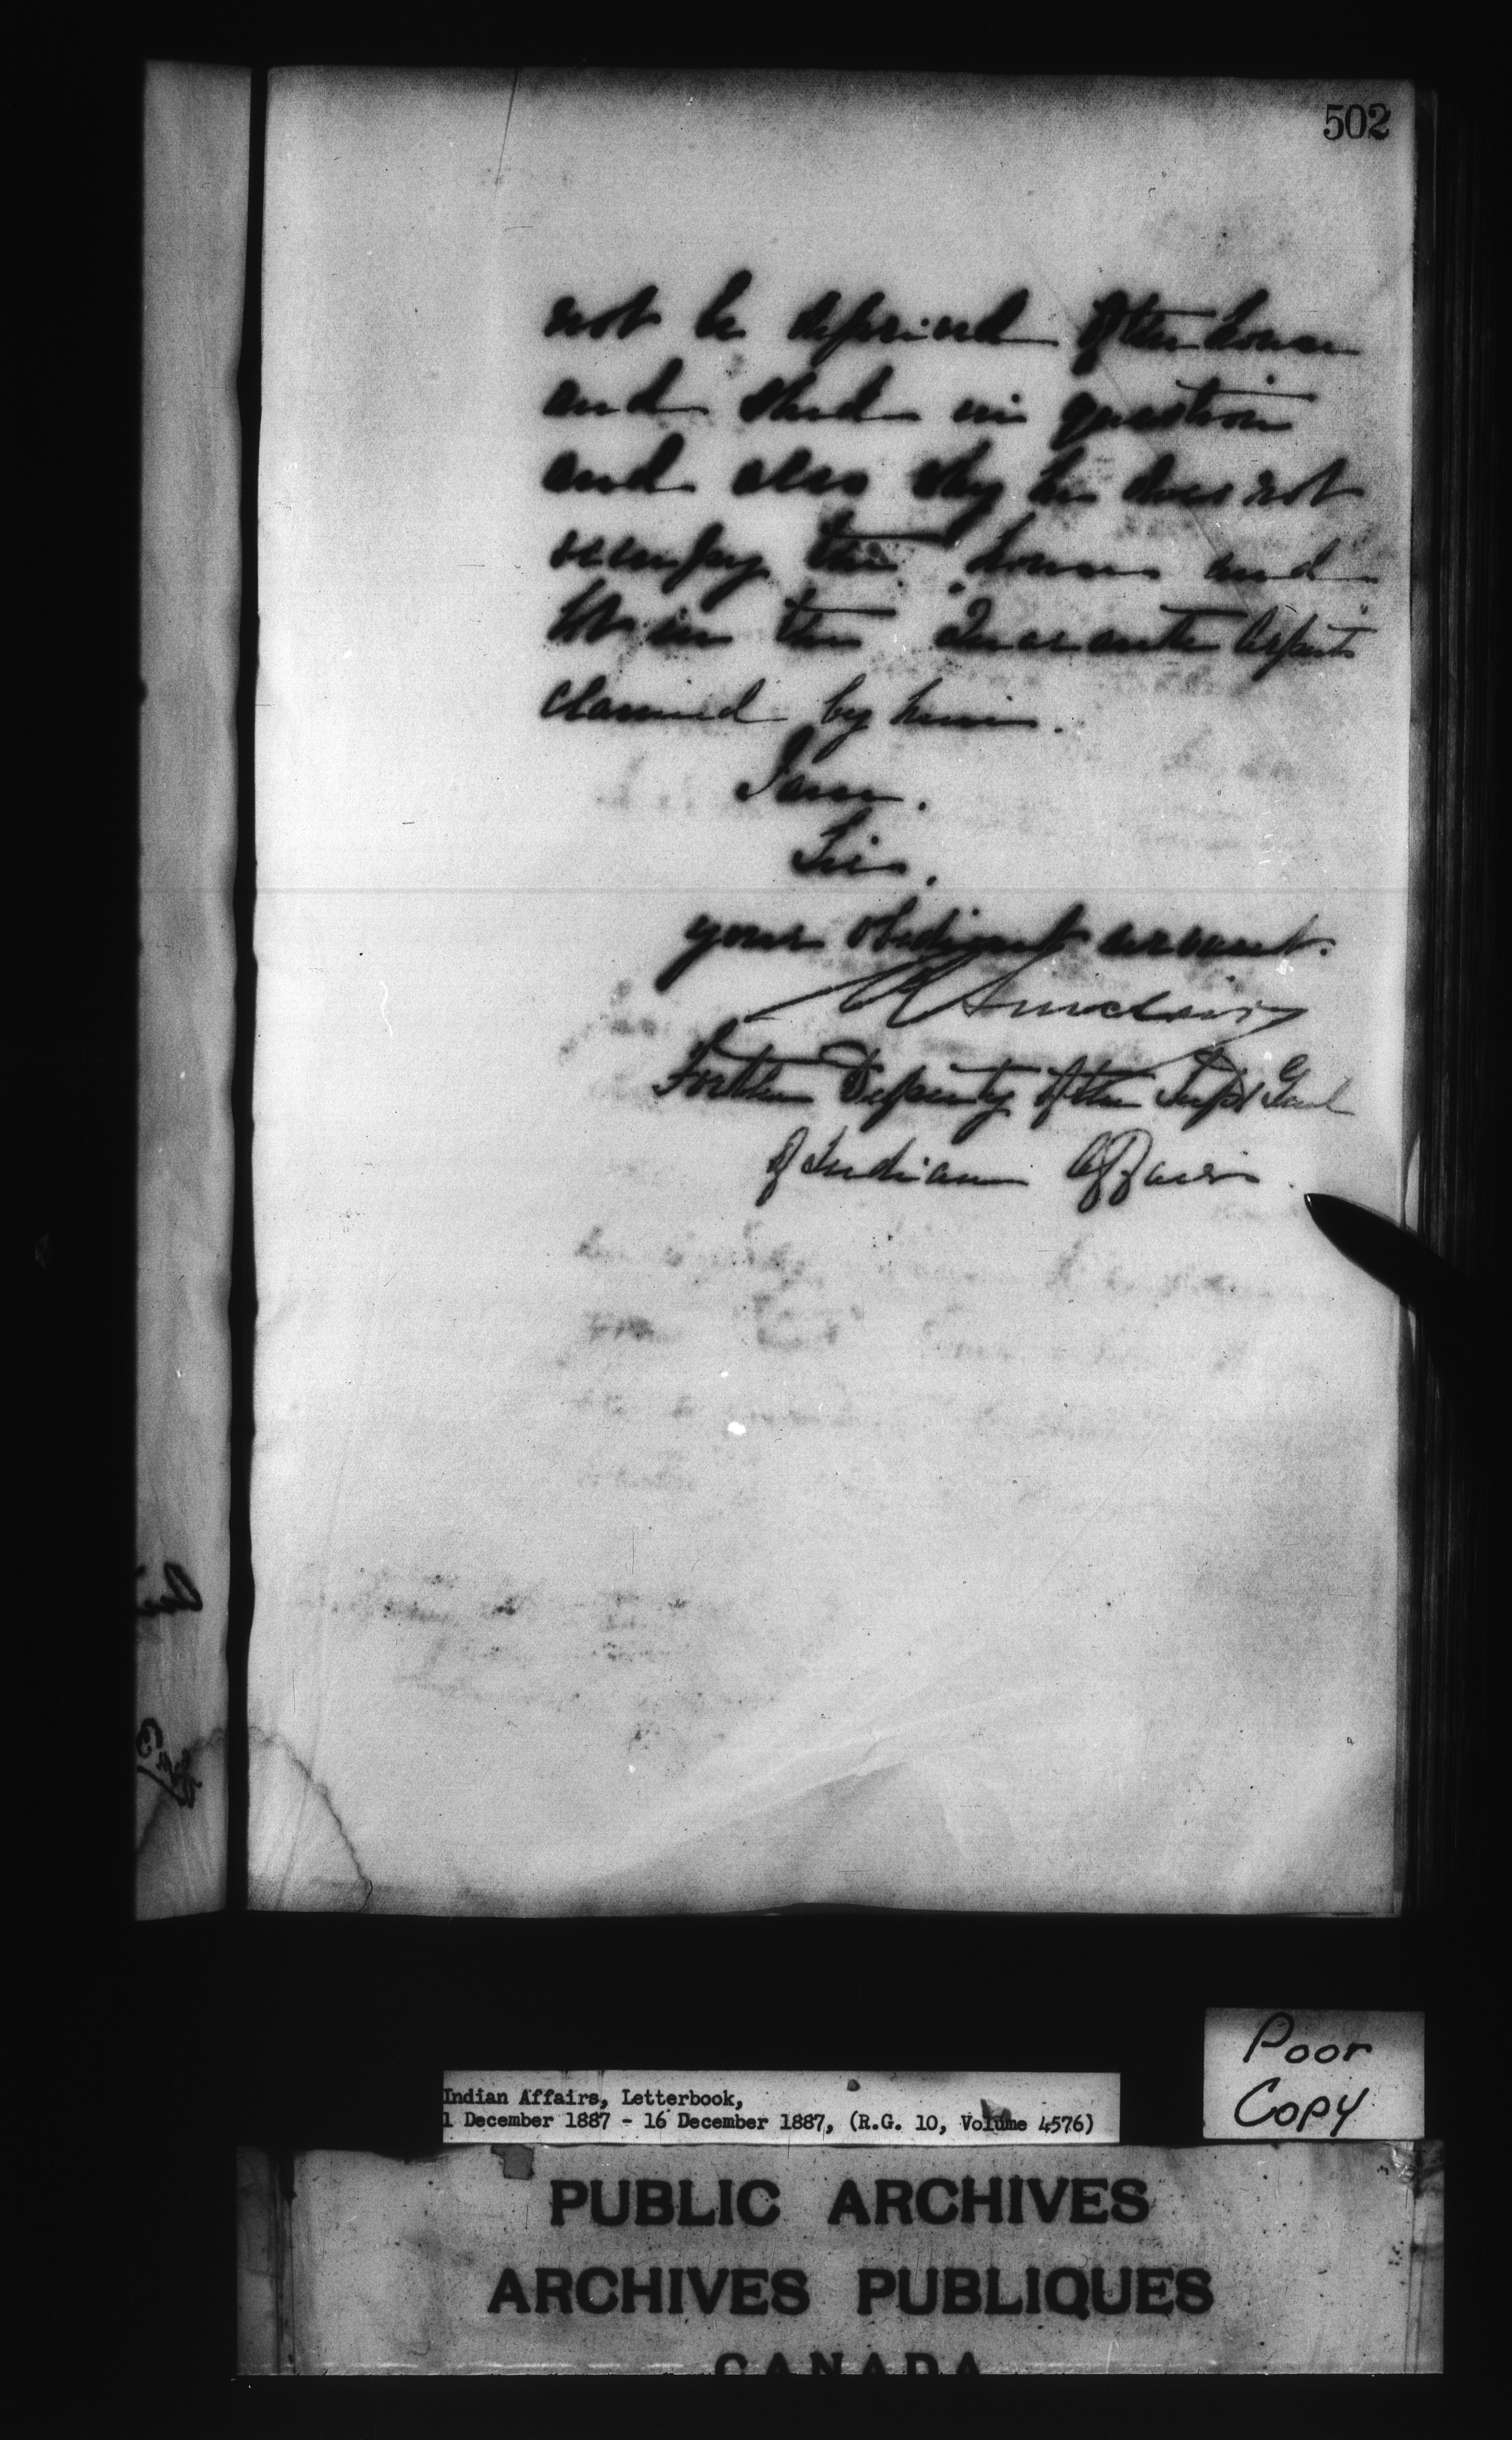 502
not be deprived of the house
and shed in question
and also why he does not
occupy the house and
lot in the "Quarante Arpents"
claimed by him.
I am.
Sir.
your obedient servant.
R Sinclair
For the Deputy of the Supt Genl
of Indian Affairs.
Poor
Copy
Indian Affairs, Letterbook,
1 December 1887 - 16 December 1887, (R.G. 10, Volume 4576)
PUBLIC ARCHIVES
ARCHIVES PUBLIQUES
CANADA